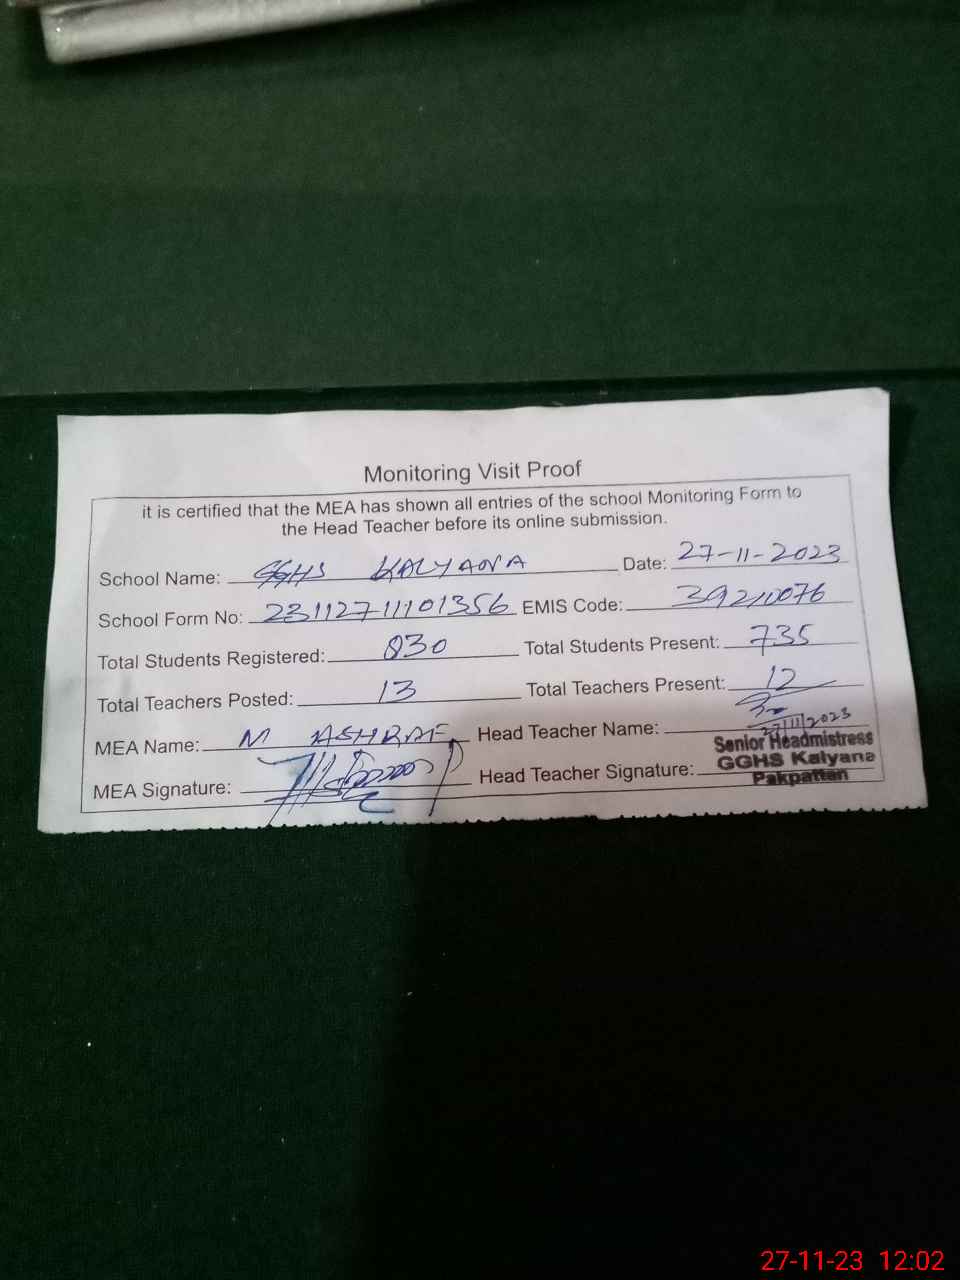 Monitoring Visit Proof
it is certified that the MEA has shown all entries of the school Monitoring Form to
the Head Teacher before its online submission.
School Name: GGHS KALYANA Date: 27-11-2023
School Form No: 23112711101356 EMIS Code: 39210076
Total Students Registered: 830 Total Students Present: 735
Total Teachers Posted: 13 Total Teachers Present: 12
MEA Name: M ASHRAF Head Teacher Name:
27/11/2023
MEA Signature: Head Teacher Signature:
Senior Headmistress
GGHS Kalyana
Pakpattan
27-11-23 12:02